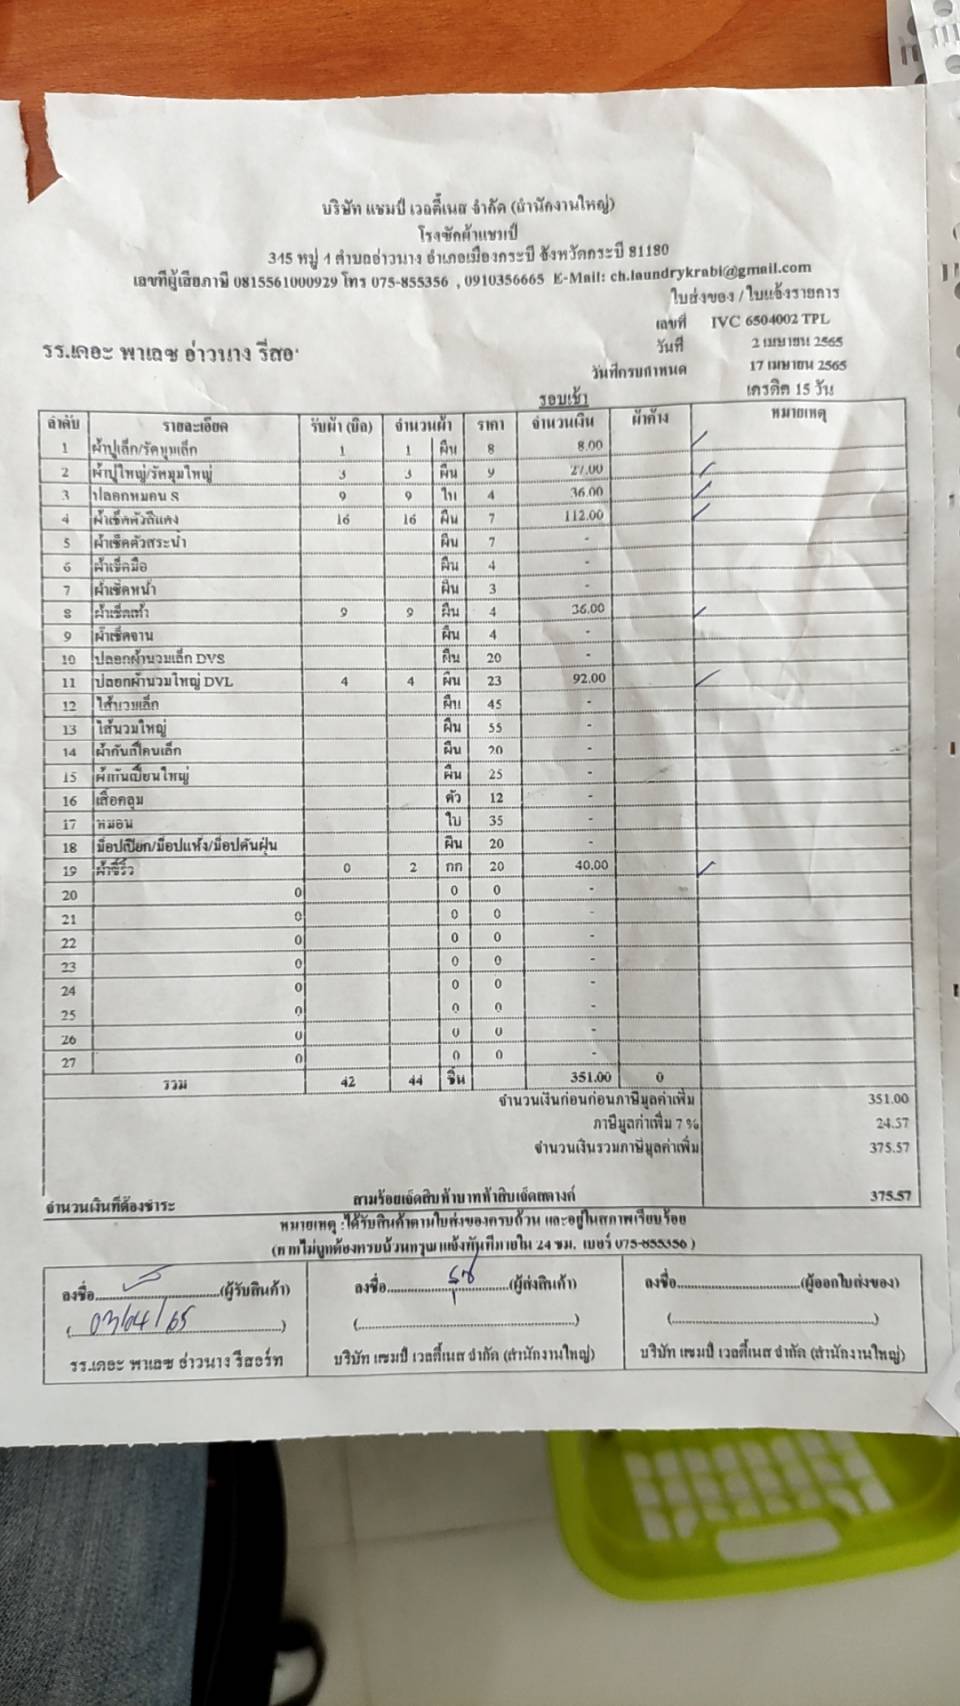 บริษัท แชมป์ เวลตี้เนส จำกัด (สำนักงานใหญ่)
โรงซักผ้าแชมป์
345 หมู่ 4 ตำบลอ่าวนาง อำเภอเมืองกระบี่ จังหวัดกระบี่ 81180
เลขที่ผู้เสียภาษี 0815561000929 โทร 075-855356 , 0910356665 E-Mail: ch.laundrykrabi@gmail.com
ใบส่งของ / ใบแจ้งรายการ
เลขที่ IVC 6504002 TPL
รร.เดอะ พาเลซ อ่าวนาง รีสอ
วันที่ 2 เมษายน 2565
วันที่ครบกำหนด 17 เมษายน 2565
รอบเช้า เครดิต 15 วัน
ลำดับ รายละเอียด รับผ้า (บิล) จำนวนผ้า ราคา จำนวนเงิน ผ้าค้าง หมายเหตุ
1 ผ้าปูเล็ก/รัดมุมเล็ก 1 1 ผืน 8 8.00
2 ผ้าปูใหญ่/รัดมุมใหญ่ 3 3 ผืน 9 27.00
3 ปลอกหมอน S 9 9 ใบ 4 36.00
4 ผ้าเช็ดตัวสีแดง 16 16 ผืน 7 112.00
5 ผ้าเช็ดตัวสระน้ำ ผืน 7 -
6 ผ้าเช็ดมือ ผืน 4 -
7 ผ้าเช็ดหน้า ผืน 3 -
8 ผ้าเช็ดเท้า 9 9 ผืน 4 36.00
9 ผ้าเช็ดจาน ผืน 4 -
10 ปลอกผ้านวมเล็ก DVS ผืน 20 -
11 ปลอกผ้านวมใหญ่ DVL 4 4 ผืน 23 92.00
12 ไส้นวมเล็ก ผืน 45 -
13 ไส้นวมใหญ่ ผืน 55 -
14 ผ้ากันเปื้อนเล็ก ผืน 20 -
15 ผ้ากันเปื้อนใหญ่ ผืน 25 -
16 เสื้อคลุม ตัว 12 -
17 หมอน ใบ 35 -
18 ม็อปเปียก/ม็อปแห้ง/ม็อปดันฝุ่น ผืน 20 -
19 ผ้าขี้ริ้ว 0 2 กก 20 40.00
20 0 0 0 -
21 0 0 0 -
22 0 0 0 -
23 0 0 0 -
24 0 0 0 -
25 0 0 0 -
26 0 0 0 -
27 0 0 0 -
รวม 42 44 ชิ้น 351.00 0
จำนวนเงินก่อนก่อนภาษีมูลค่าเพิ่ม 351.00
ภาษีมูลค่าเพิ่ม 7 % 24.57
จำนวนเงินรวมภาษีมูลค่าเพิ่ม 375.57
จำนวนเงินที่ต้องชำระ สามร้อยเจ็ดสิบห้าบาทห้าสิบเจ็ดสตางค์ 375.57
หมายเหตุ :ได้รับสินค้าตามใบส่งของครบถ้วน และอยู่ในสภาพเรียบร้อย
(หากไม่ถูกต้องครบถ้วนกรุณาแจ้งทันทีภายใน 24 ชม. เบอร์ 075-855356 )
ลงชื่อ..............................(ผู้รับสินค้า) ลงชื่อ..............................(ผู้ส่งสินค้า) ลงชื่อ..............................(ผู้ออกใบส่งของ)
( 03/04/65 ) (..............................) (..............................)
รร.เดอะ พาเลซ อ่าวนาง รีสอร์ท บริษัท แชมป์ เวลตี้เนส จำกัด (สำนักงานใหญ่) บริษัท แชมป์ เวลตี้เนส จำกัด (สำนักงานใหญ่)